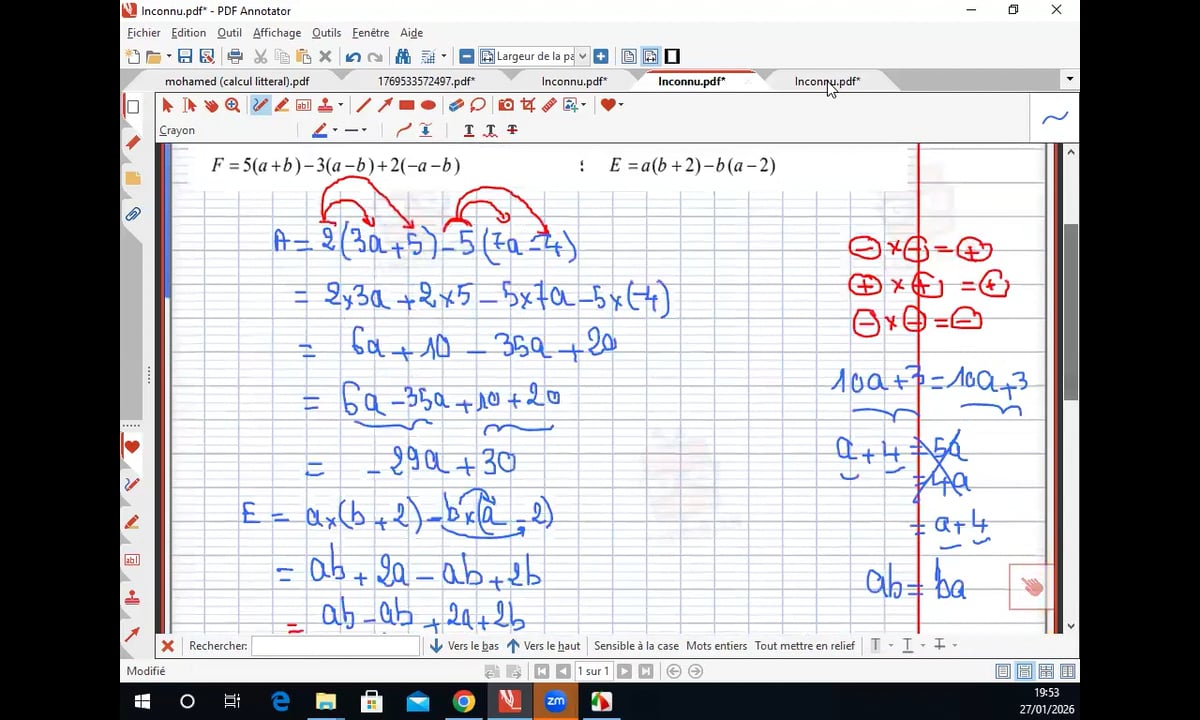 Inconnu.pdf* - PDF Annotator
Fichier Edition Outil Affichage Outils Fenêtre Aide
Largeur de la pa
mohamed (calcul litteral).pdf 1769533572497.pdf* Inconnu.pdf* Inconnu.pdf* Inconnu.pdf*
Crayon
F = 5(a+b)−3(a−b)+2(−a−b) : E = a(b+2)−b(a−2)
A = 2(3a+5)-5(7a-4)
= 2×3a+2×5-5×7a-5×(-4)
= 6a+10-35a+20
= 6a-35a+10+20
= -29a+30
E = a×(b+2)-b×(a-2)
= ab+2a-ab+2b
= ab-ab+2a+2b
⊖×⊖=⊕
⊕×⊕=⊕
⊖×⊖=⊖
10a+3=10a+3
a+4=5a
=4a
=a+4
ab=ba
Rechercher: Vers le bas Vers le haut Sensible à la case Mots entiers Tout mettre en relief
Modifié 1 sur 1
zm
19:53
27/01/2026